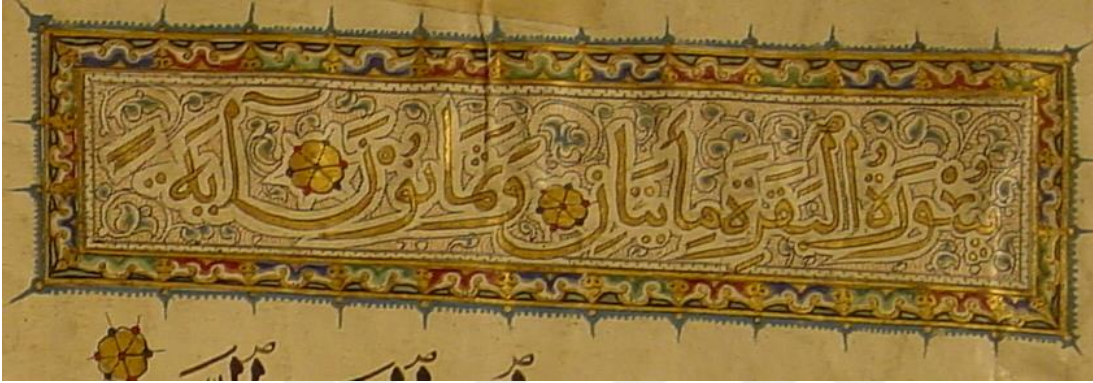 سُورَةُ الْبَقَرَةِ مِائَتَانِ وَثَمَانُونَ آيَةً